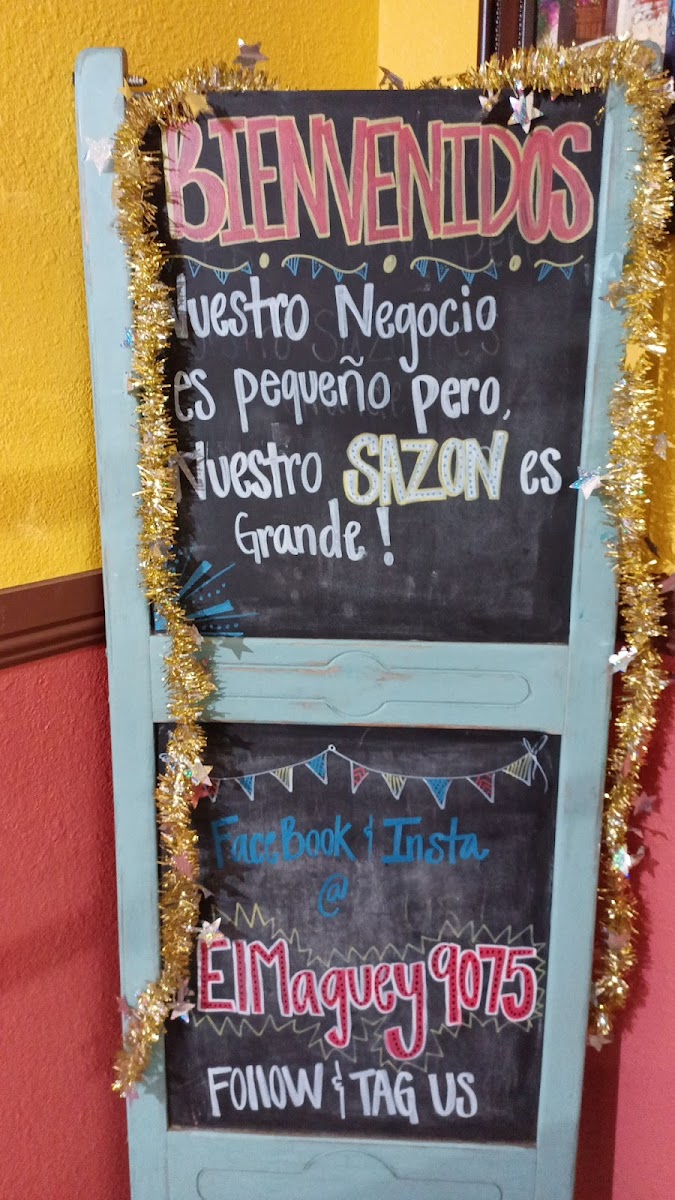 BIENVENIDOS
Nuestro Negocio
es pequeño pero,
Nuestro SAZON es
Grande!
FaceBook & Insta
@
ElMaguey9075
FOllOW & TAG US